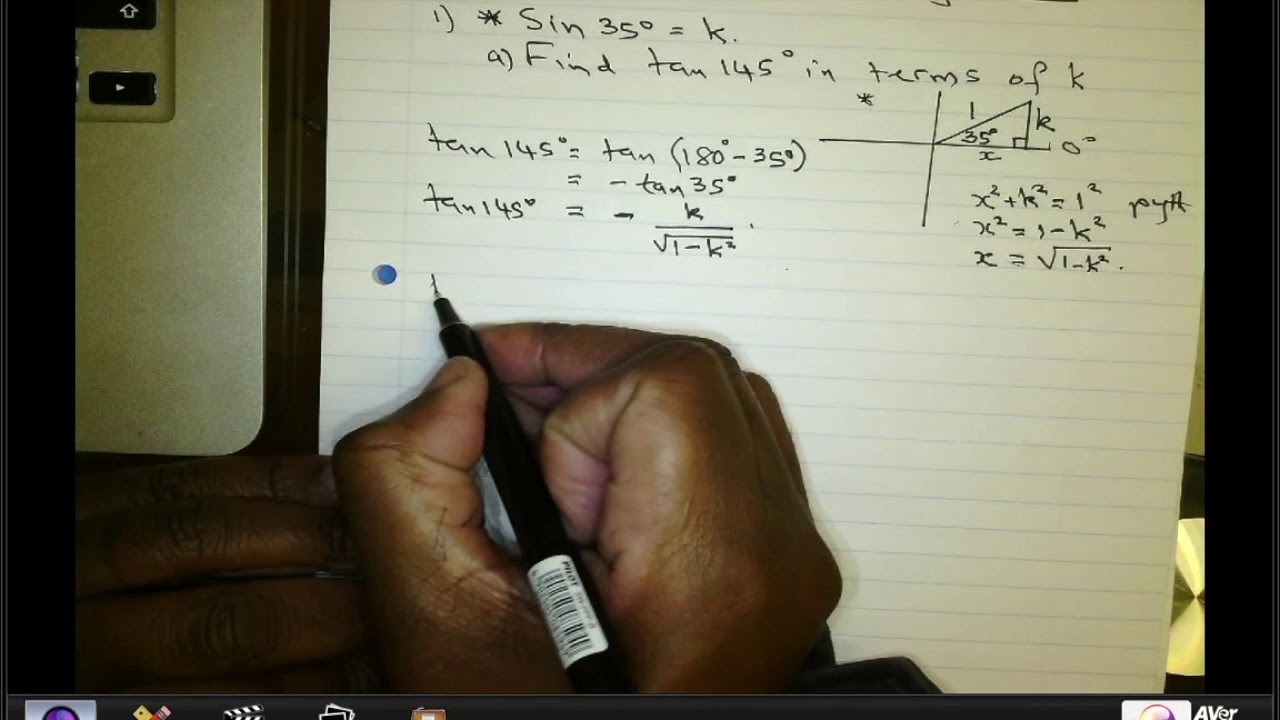 1) * Sin 35° = k.
a) Find tan 145° in terms of k
*
1
k
35°
x
0°
tan 145° = tan (180° - 35°)
= - tan 35°
tan 145° = - k / √1-k² .
x² + k² = 1² pyth
x² = 1 - k²
x = √1-k² .
PILOT
AVer